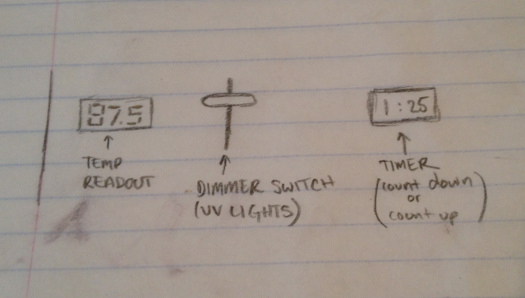 87.5
1:25
TEMP
READOUT
DIMMER SWITCH
(UV LIGHTS)
TIMER
(count down
or
count up)